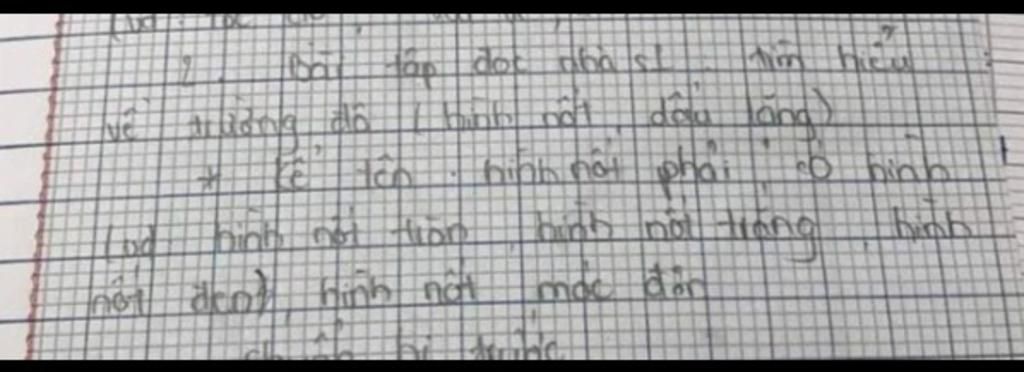 2. Bài tập đọc nhà s1. tìm hiểu
về trường độ (hình nốt, dấu lặng)
* Kể tên. hình nốt phải có hình
(vd hình nốt tròn, hình nốt trắng, hình
nốt đen), hình nốt móc đơn